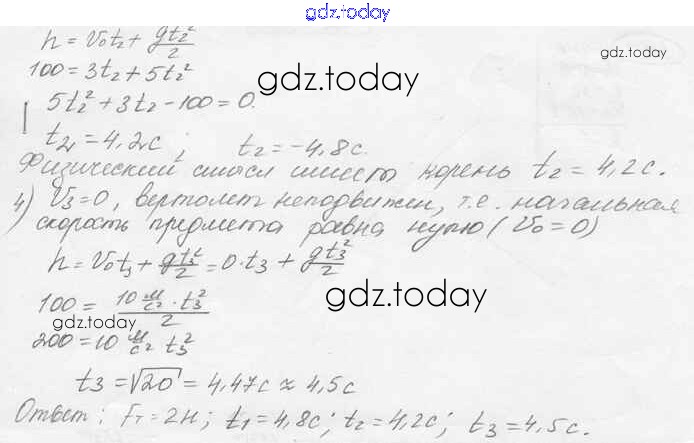 gdz.today
h = V₀t₂ + gt₂²/2
gdz.today
100 = 3t₂ + 5t₂²
gdz.today
5t₂² + 3t₂ - 100 = 0.
t₂ = 4,2с; t₂ = -4,8с.
Физический смысл имеет корень t₂ = 4,2с.
4) V₃ = 0, вертолет неподвижен, т.е. начальная
скорость предмета равна нулю (V₀ = 0)
h = V₀t₃ + gt₃²/2 = 0·t₃ + gt₃²/2
gdz.today
100 = 10 м/с² · t₃² / 2
gdz.today
200 = 10 м/с² t₃²
t₃ = √20 = 4,47с ≈ 4,5с
gdz.today
Ответ: Fт = 2Н; t₁ = 4,8с; t₂ = 4,2с; t₃ = 4,5с.